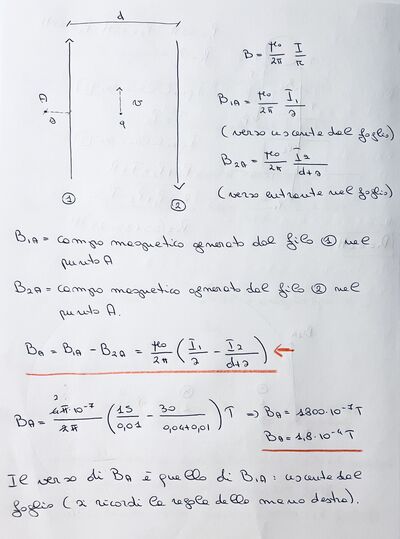 d
A
a
v
q
①
②
B = μ₀/2π I/r
B₁A = μ₀/2π I₁/a
(verso uscente dal foglio)
B₂A = μ₀/2π I₂/d+a
(verso entrante nel foglio)
B₁A = campo magnetico generato dal filo ① nel
punto A
B₂A = campo magnetico generato dal filo ② nel
punto A.
BA = B₁A - B₂A = μ₀/2π (I₁/a - I₂/d+a) ←
BA = 2 4π·10⁻⁷/2π (15/0,01 - 30/0,04+0,01) T ⇒ BA = 1800·10⁻⁷ T
BA = 1,8·10⁻⁴ T
Il verso di BA è quello di B₁A : uscente dal
foglio (si ricordi la regola della mano destra).